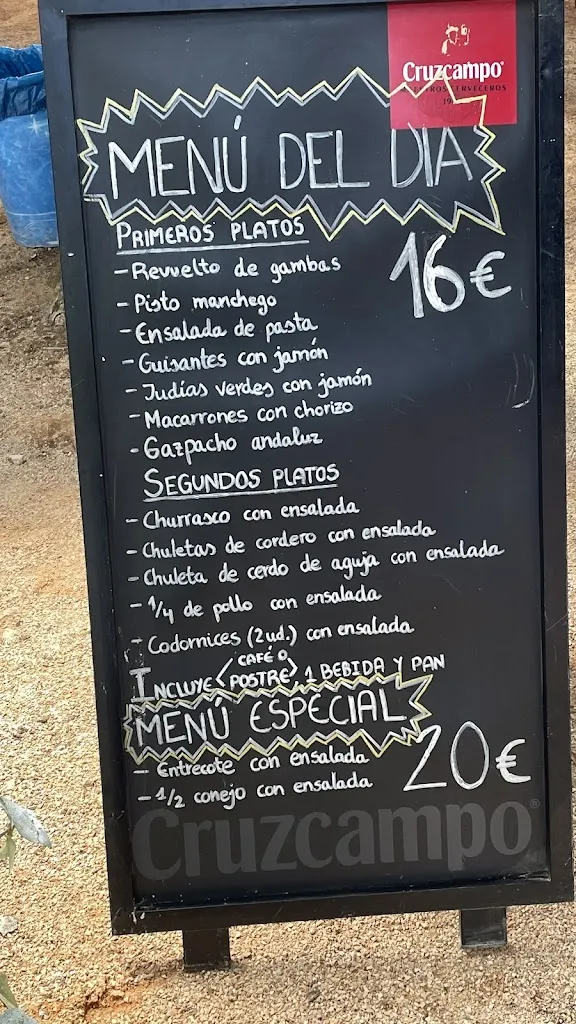 Cruzcampo
MENÚ DEL DÍA
PRIMEROS PLATOS
16€
- Revuelto de gambas
- Pisto manchego
- Ensalada de pasta
- Guisantes con jamón
- Judías verdes con jamón
- Macarrones con chorizo
- Gazpacho andaluz
SEGUNDOS PLATOS
- Churrasco con ensalada
- Chuletas de cordero con ensalada
- Chuleta de cerdo de aguja con ensalada
- 1/4 de pollo con ensalada
- Codornices (2ud.) con ensalada
INCLUYE < CAFÉ O
POSTRE >, 1 BEBIDA Y PAN
MENÚ ESPECIAL
20€
- Entrecote con ensalada
- 1/2 conejo con ensalada
Cruzcampo®